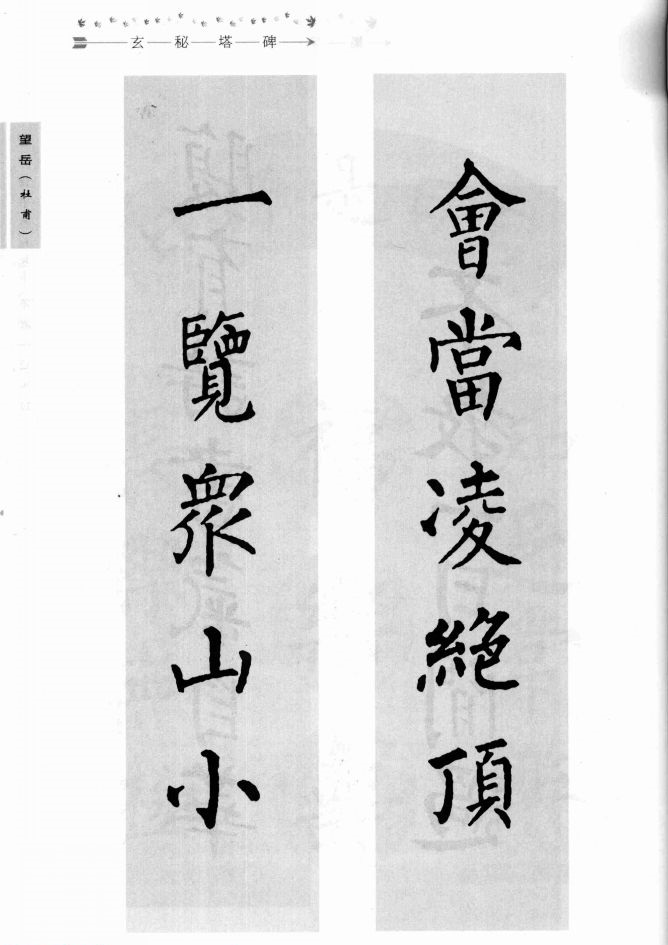 玄秘塔碑
望岳（杜甫）
會當凌絕頂
一覽眾山小